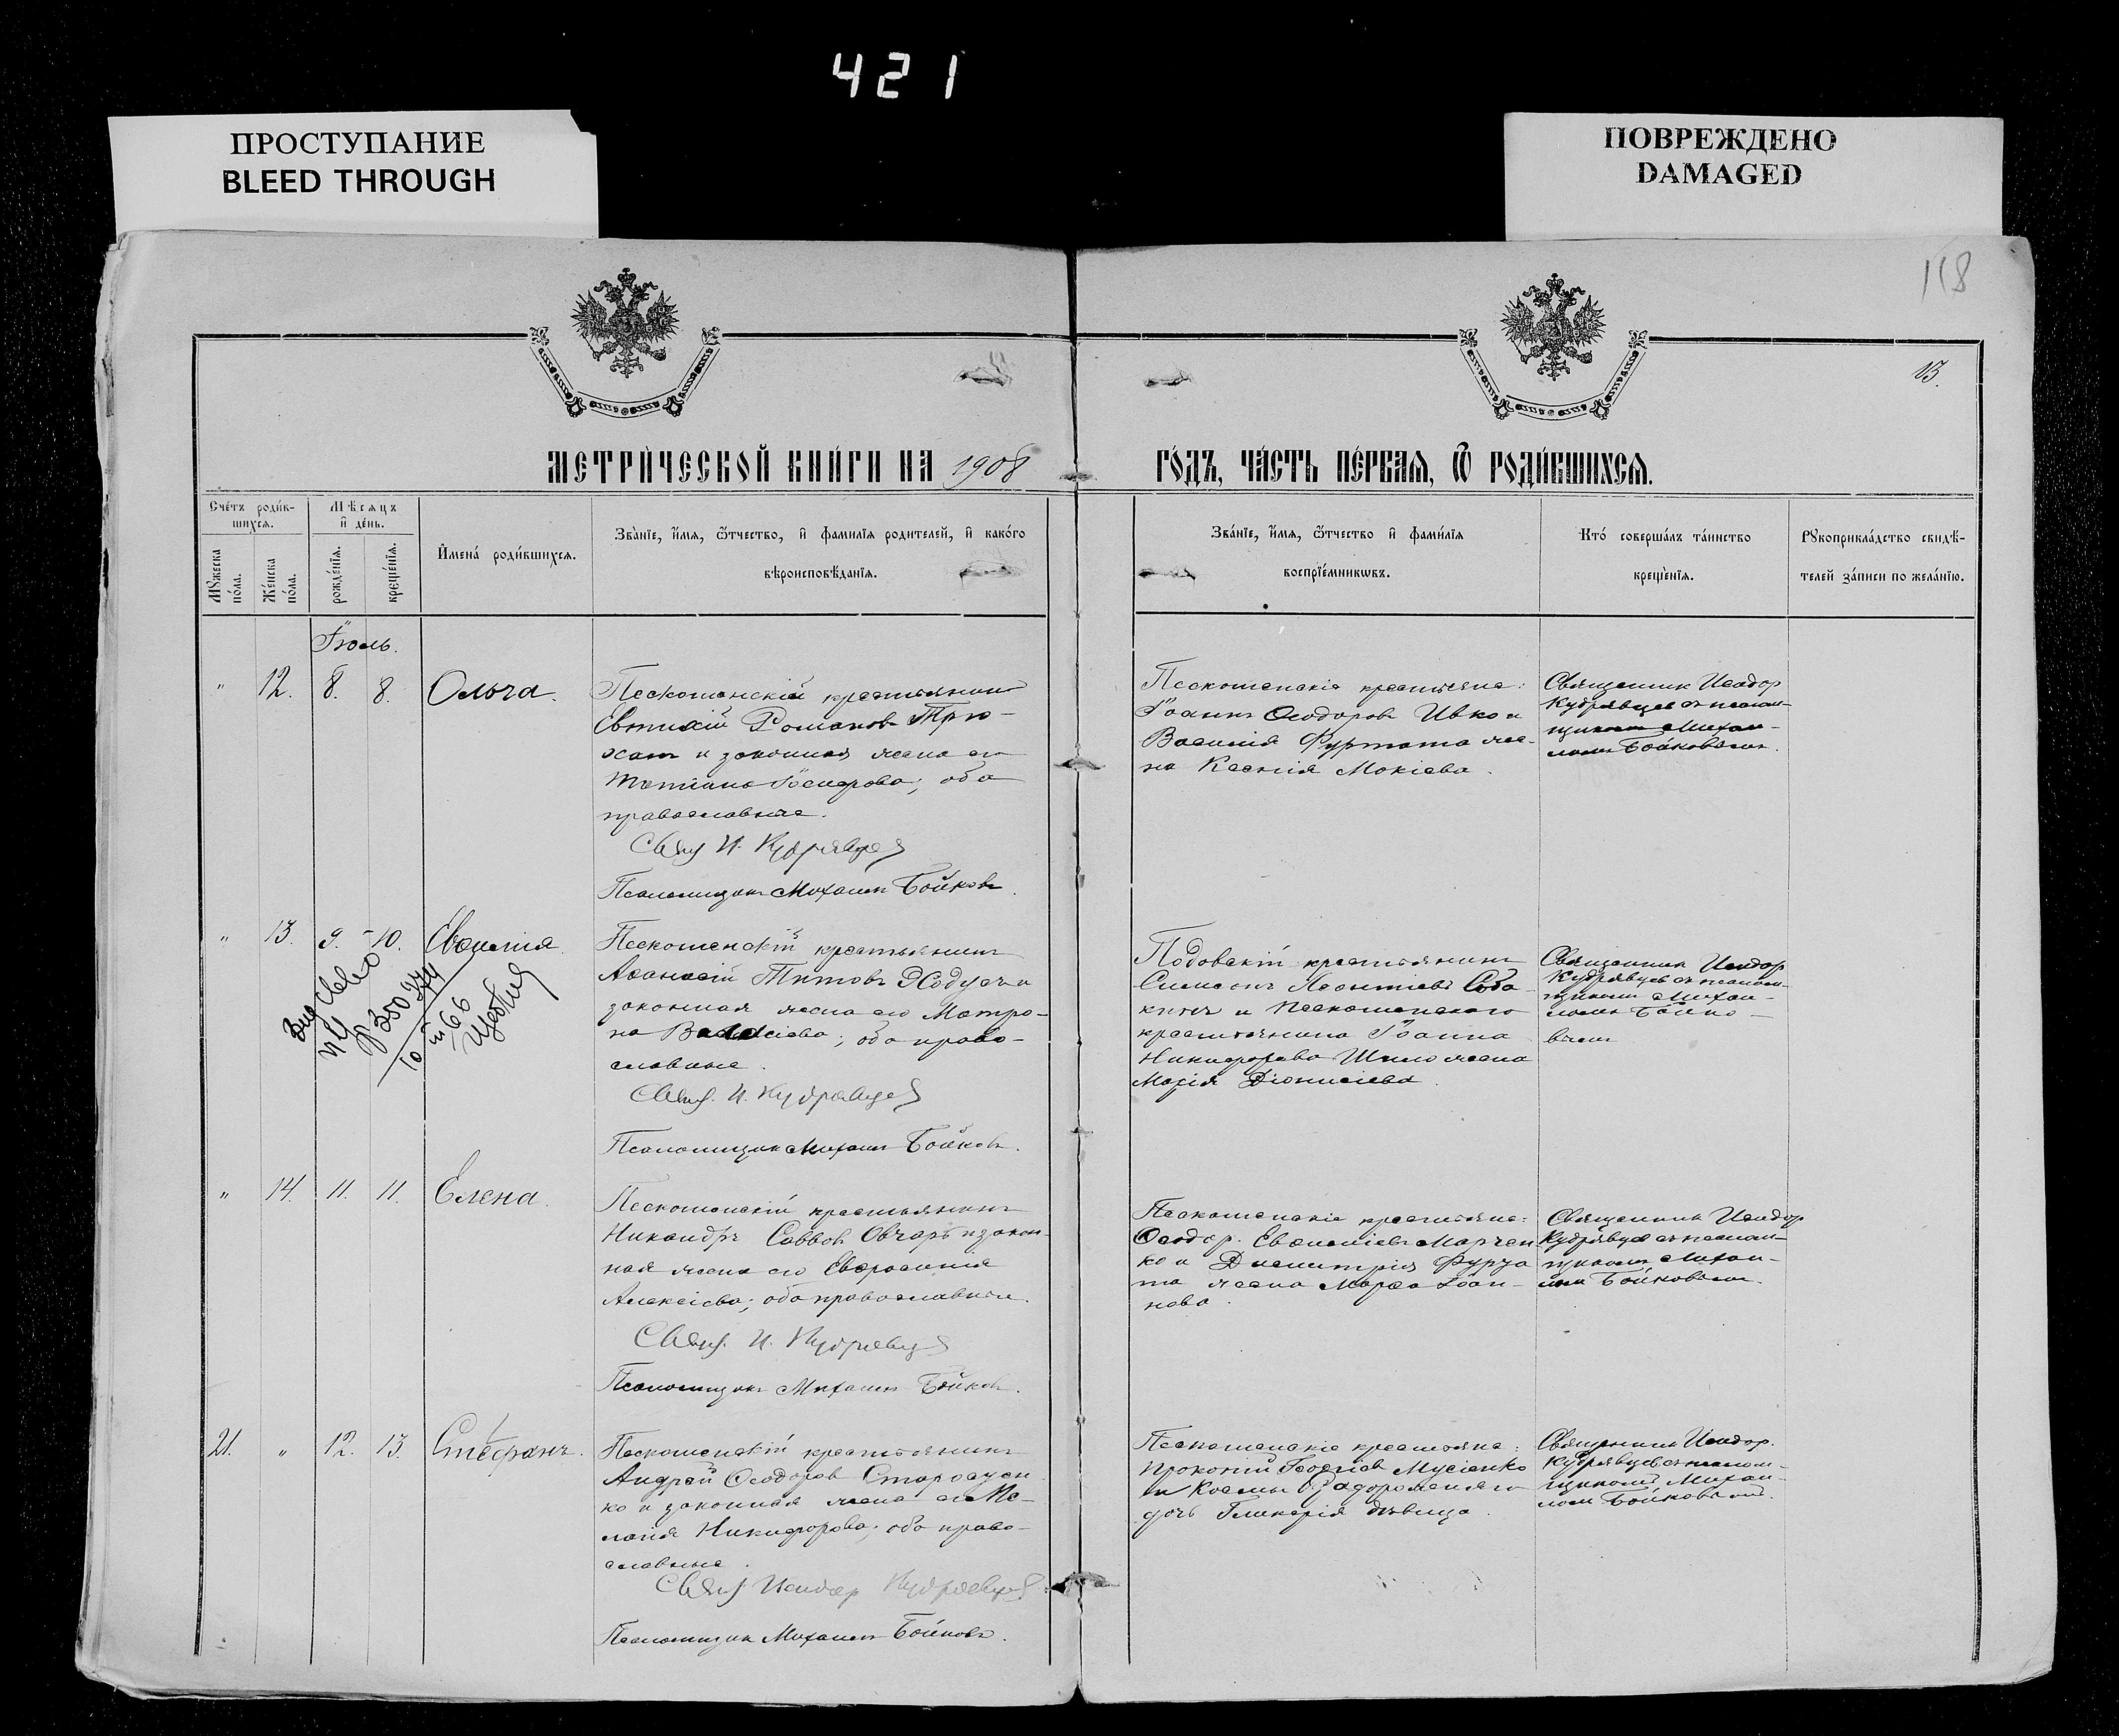 421
ПРОСТУПАНИЕ
BLEED THROUGH
ПОВРЕЖДЕНО
DAMAGED
118
13.
МЕТРИ́ЧЕСКОЙ КНИ́ГИ НА 1908
ГО́ДЪ, ЧА́СТЬ ПЕ́РВАѦ, Ѿ РОДИ́ВШИХСѦ.
Сче́тъ роди́в-
шихсѧ.
Мꙋ́жеска
по́ла.
Же́нска
по́ла.
Мѣ́сѧцъ
и҆ де́нь.
рожде́нїѧ.
креще́нїѧ.
И҆мена̀ роди́вшихсѧ.
Зва́нїе, и҆́мѧ, ѻ҆́тчество, и҆ фами́лїѧ роди́телей, и҆ како́гѡ
вѣроисповѣ́данїѧ.
Зва́нїе, и҆́мѧ, ѻ҆́тчество и҆ фами́лїѧ
воспрїе́мникѡвъ.
Кто̀ соверша́лъ та́инство
креще́нїѧ.
Рꙋкоприкла́дство свидѣ́-
телей за́писи по жела́нїю.
Іюль.
" 12. 8. 8. Ольга.
Пескошенскій крестьянинъ
Евтихій Романовъ Трю-
хат и законная жена его
Татіана Іосифова; оба
православные.
Свящ И. Кудрявцев
Псаломщикъ Михаилъ Бойковъ.
Пескошенскіе крестьяне:
Іоаннъ Ѳеодоровъ Ивко и
Василія Фуртата же-
на Ксенія Мокіева.
Священникъ Исидор
Кудрявцевъ съ псалом-
щикомъ Михаи-
ломъ Бойковымъ.
" 13. 9. 10. Евфимія
Пескошенскій крестьянинъ
Аѳанасій Титовъ и
законная жена его Матро-
на; оба право-
славные.
Свящ. И. Кудрявцев
Псаломщикъ Михаилъ Бойковъ.
Подовскій крестьянинъ
Симеонъ Леонтіевъ Соба-
кинъ и Пескошенскаго
крестьянина Іоанна
Никифорова Шило жена
Марія Діонисіева.
Священникъ Исидор
Кудрявцевъ съ псалом-
щикомъ Михаи-
ломъ Бойко-
вымъ
" 14. 11. 11. Елена.
Пескошенскій крестьянинъ
Никандръ Саввовъ Овчаръ и закон-
ная жена его Евфросинія
Алексіева; оба православные.
Свящ. И. Кудрявцев
Псаломщикъ Михаилъ Бойковъ.
Пескошенскіе крестьяне:
Ѳеодор. Евфиміевъ Марчен-
ко и Димитрія Фурта
та жена Марѳа Іоан-
нова.
Священникъ Исидор
Кудрявцевъ съ псалом-
щикомъ Михаи-
ломъ Бойковымъ.
21. " 12. 13. Стефанъ.
Пескошенскій крестьянинъ
Андрей Ѳеодоровъ Старосен
ко и законная жена его Ме-
ланія Никифорова; оба право-
славные.
Свящ Исидор Кудрявцев
Псаломщикъ Михаилъ Бойковъ.
Пескошенскіе крестьяне:
Прокопій Георгіев Мусіенко
и Космы Задорожняго
дочь Гликерія дѣвица.
Священникъ Исидор.
Кудрявцевъ съ псалом-
щикомъ Михаи-
ломъ Бойковымъ.